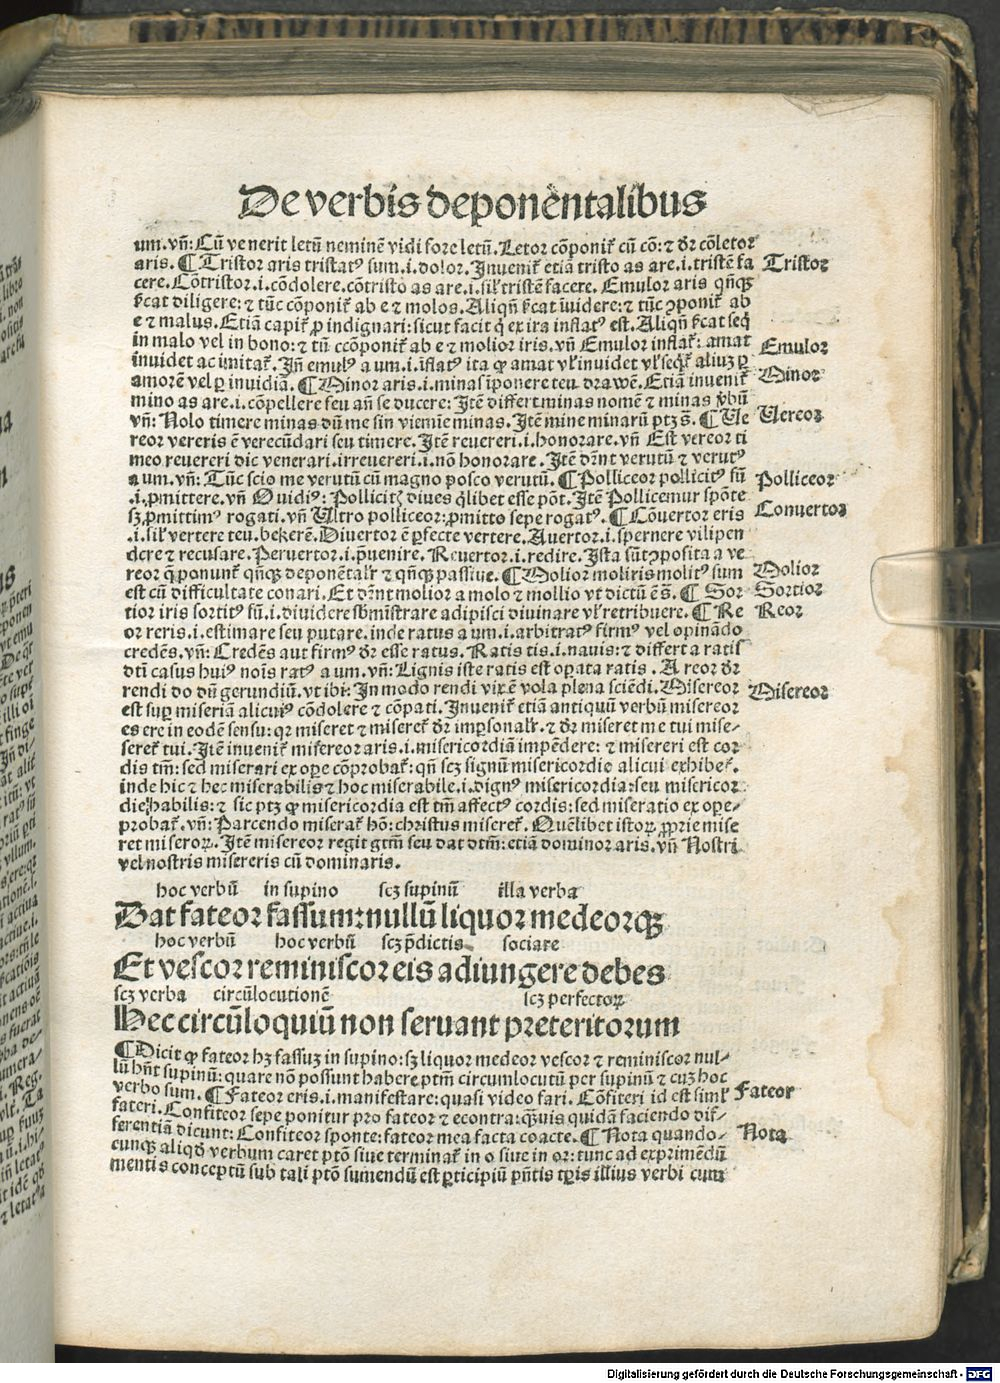 De verbis deponentalibus
um. vñ: Cũ venerit letũ neminẽ vidi fore letũ. Letor cõponit᷑ cũ cõ: ⁊ dr̃ cõletor
aris. ¶ Tristor aris tristatꝰ sum .i. dolor. Inuenit᷑ etiã tristo as are .i. tristẽ fa
cere. Cõtristor .i. cõdolere. cõtristo as are .i. sil᷑ tristẽ facere. Emulor aris qñqꝫ
diligere: ⁊ tũc cõponit᷑ ab e ⁊ molos. Aliqñ inuidere: ⁊ tũc ꝯponit᷑ ab
e ⁊ malus. Etiã capit᷑ ꝓ indignari: sicut facit q̇ ex ira inflatꝰ est. Aliqñ
in malo vel in bono: ⁊ tũ ccõponit᷑ ab e ⁊ molior iris. vñ Emulor inflat᷑: amat
inuidet ac imitat᷑. Jñ emulꝰ a um .i. iflatꝰ ita ꝙ amat vl᷑ inuidet vl᷑ seqt᷑ aliuꝫ ꝑ
amorẽ vel ꝑ inuidiã. ¶ Minor aris .i. minas iponere teu. drawẽ. Etiã inuenit᷑
mino as are .i. cõpellere seu añ se ducere: Itẽ differt minas nomẽ ⁊ minas
vñ: Nolo timere minas dũ me sin viemie minas. Itẽ mine minarũ ptꝫ s̃. ¶ Ve
reor vereris ẽ verecũdari seu timere. Itẽ reuereri .i. honorare. vñ Est vereor ti
meo reuereri dic venerari. irreuereri .i. nõ honorare. Itẽ dñt verutũ ⁊ verutꝰ
a um. vñ: Tũc scio me verutũ cũ magno posco verutũ. ¶ Polliceor pollicitꝰ sũ
.i. ꝓmittere. vñ Ouidiꝰ: Pollicitꝭ diues q̇libet esse põt. Itẽ Pollicemur spõte
sꝫ ꝓmittimꝰ rogati. vñ Ultro polliceor: ꝓmitto sepe rogatꝰ. ¶ Cõuertor eris
.i. sil᷑ vertere teu. bekerẽ. Diuertor ẽ ꝑfecte vertere. Auertor .i. spernere vilipen
dere ⁊ recusare. Peruertor .i. p̃uenire. Reuertor .i. redire. Ista sũt ꝯposita a ve
reor q̃ ponunt᷑ qñqꝫ deponẽtalr̃ ⁊ qñqꝫ passiue. ¶ Molior moliris molitꝰ sum
est cũ difficultate conari. Et dñt molior a molo ⁊ mollio vt dictũ ẽ s̃. ¶ Sor
tior iris sortitꝰ sũ .i. diuidere sb̃ministrare adipisci diuinare vl᷑ retribuere. ¶ Re
or reris .i. estimare seu putare. inde ratus a um .i. arbitratꝰ firmꝰ vel opinãdo
credẽs. vñ: Credẽs aut firmꝰ dr̃ esse ratus. Ratis tis .i. nauis: ⁊ differt a ratis
dt̃i casus huiꝰ nois ratꝰ a um. vñ: Lignis iste ratis est oꝑata ratis. A reor dr̃
rendi do dũ gerundiũ. vt ibi: In modo rendi vix ẽ vola plena sciẽdi. Misereor
est suꝑ miseriã alicuiꝰ cõdolere ⁊ cõpati. Inuenit᷑ etiã antiquũ verbũ misereor
es ere in eodẽ sensu: qr miseret ⁊ miseret᷑ dr̃ imꝑsonalr̃. ⁊ dr̃ miseret me tui mise-
seret᷑ tui. Itẽ inuenit᷑ misereor aris .i. misericordiã impẽdere: ⁊ misereri est cor
dis tm̃: sed miserari ex oꝑe cõprobat᷑: qñ scꝫ signũ misericordie alicui exhibet᷑.
inde hic ⁊ hec miserabilis ⁊ hoc miserabile .i. dignꝰ misericordia: seu misericor
die habilis: ⁊ sic ptꝫ ꝙ misericordia est tm̃ affectꝰ cordis: sed miseratio ex oꝑe-
probat᷑. vñ: Parcendo miserat᷑ hõ: christus miseret᷑. Quẽlibet istoꝝ ꝓprie mise
ret miseroꝝ. Itẽ misereor regit gtm̃ seu dat dtm̃: etiã dominor aris. vñ Nostri
vel nostris misereris cũ dominaris.
Tristor
Emulor
Minor
Vereor
Polliceor
Conuertor
Molior
Sortior
Reor
Misereor
hoc verbũ in supino scꝫ supinũ illa verba
Dat fateor fassum: nullũ liquor medeorqꝫ
hoc verbũ hoc verbũ scꝫ p̃dictis sociare
Et vescor reminiscor eis adiungere debes
scꝫ verba circũlocutionẽ scꝫ perfectoꝝ
Hec circũloquiũ non seruant preteritorum
¶ Dicit ꝙ fateor hꝫ fassuꝫ in supino: sꝫ liquor medeor vescor ⁊ reminiscor nul-
lũ hñt supinũ: quare nõ possunt habere ptm̃ circumlocutũ per supinũ ⁊ cuꝫ hoc
verbo sum. ¶ Fateor eris .i. manifestare: quasi video fari. Cõfiteri id est simil᷑
fateri. Confiteor sepe ponitur pro fateor ⁊ econtra: q̃uis quidã faciendo dif-
ferentiã dicunt: Confiteor sponte: fateor mea facta coacte. ¶ Nota quando-
cunqꝫ aliqḋ verbum caret ptõ siue terminat᷑ in o siue in or: tunc ad exprimẽdũ
mentis conceptũ sub tali ptõ sumendũ est ꝑticipiũ pñtis tꝑis illius verbi cum
Fateor
Nota
Digitalisierung gefördert durch die Deutsche Forschungsgemeinschaft - DFG